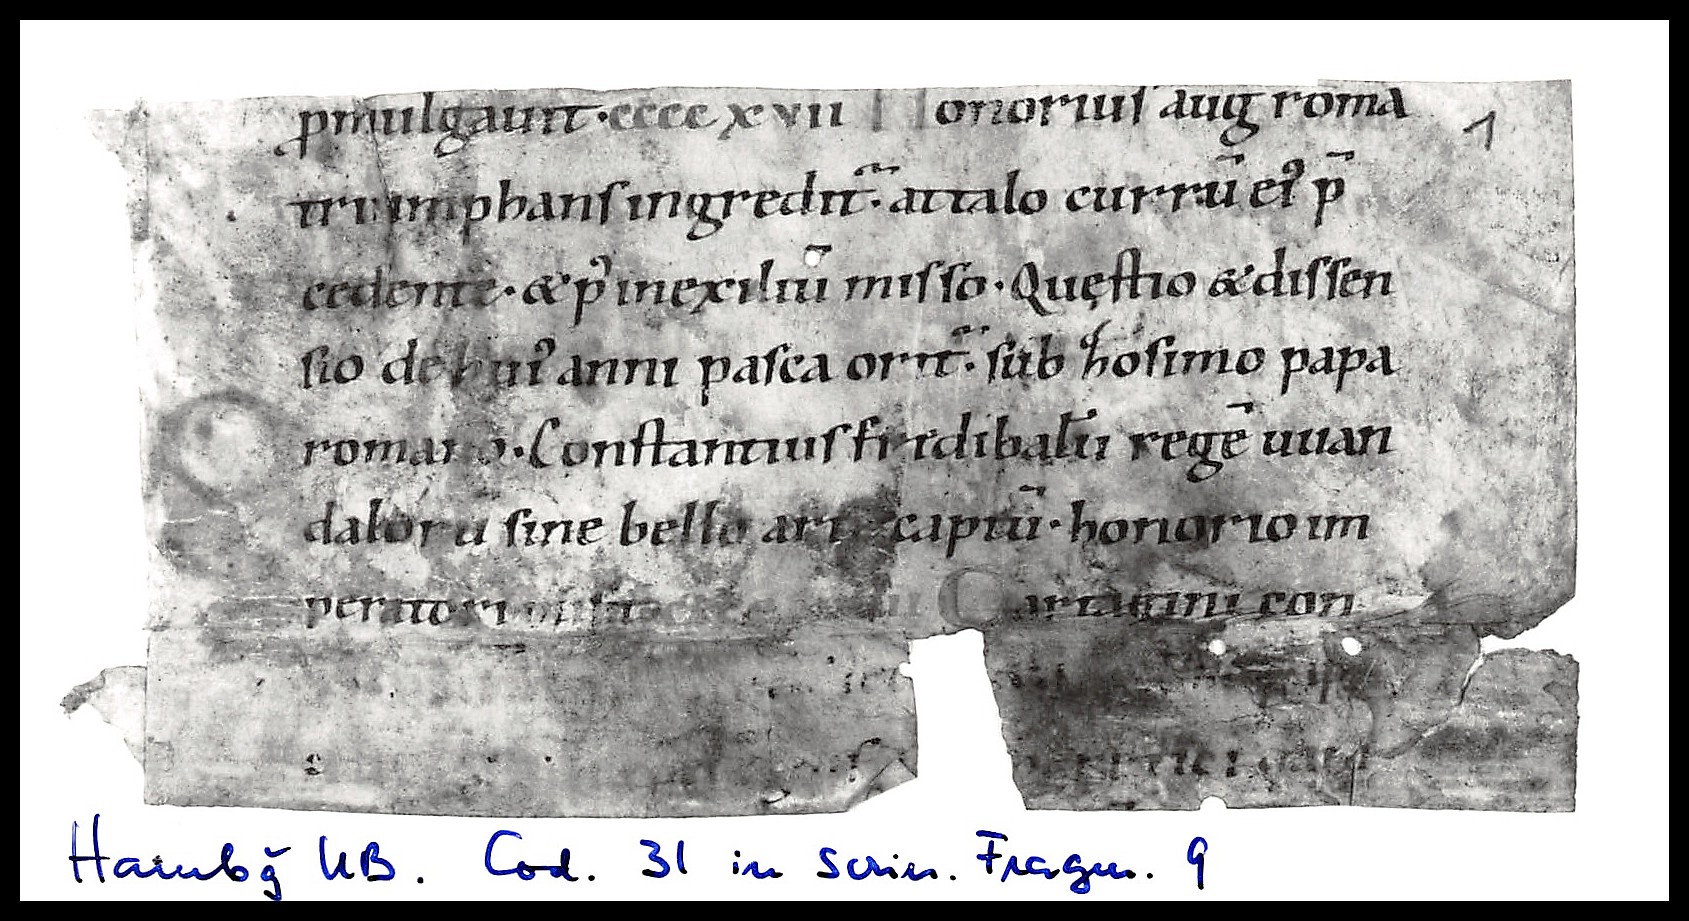 ꝓmulgauit·ccccxvii Honorius aug roma
1
triumphans ingredit᷑· attalo currū ei⁹ p̄
cedente· & p⁹ inexiliū misso· Quęstio & dissen
sio de hui⁹ anni pasca orit᷑· sub hosimo papa
romano· Constantius fridibalū regē uuan
dalorū sine bello arte captū· honorio im
peratori Cartagini con
Hambg̃ UB. Cod. 31 in scrin. Fragm. 9